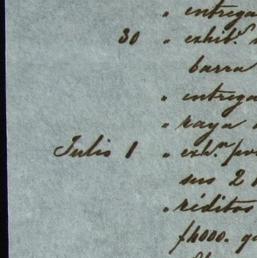 " entrega
30 " exhib.n
barra
" entrega
" raya
Julio 1 " exh.n por
sus 2
" réditos
$4000. q